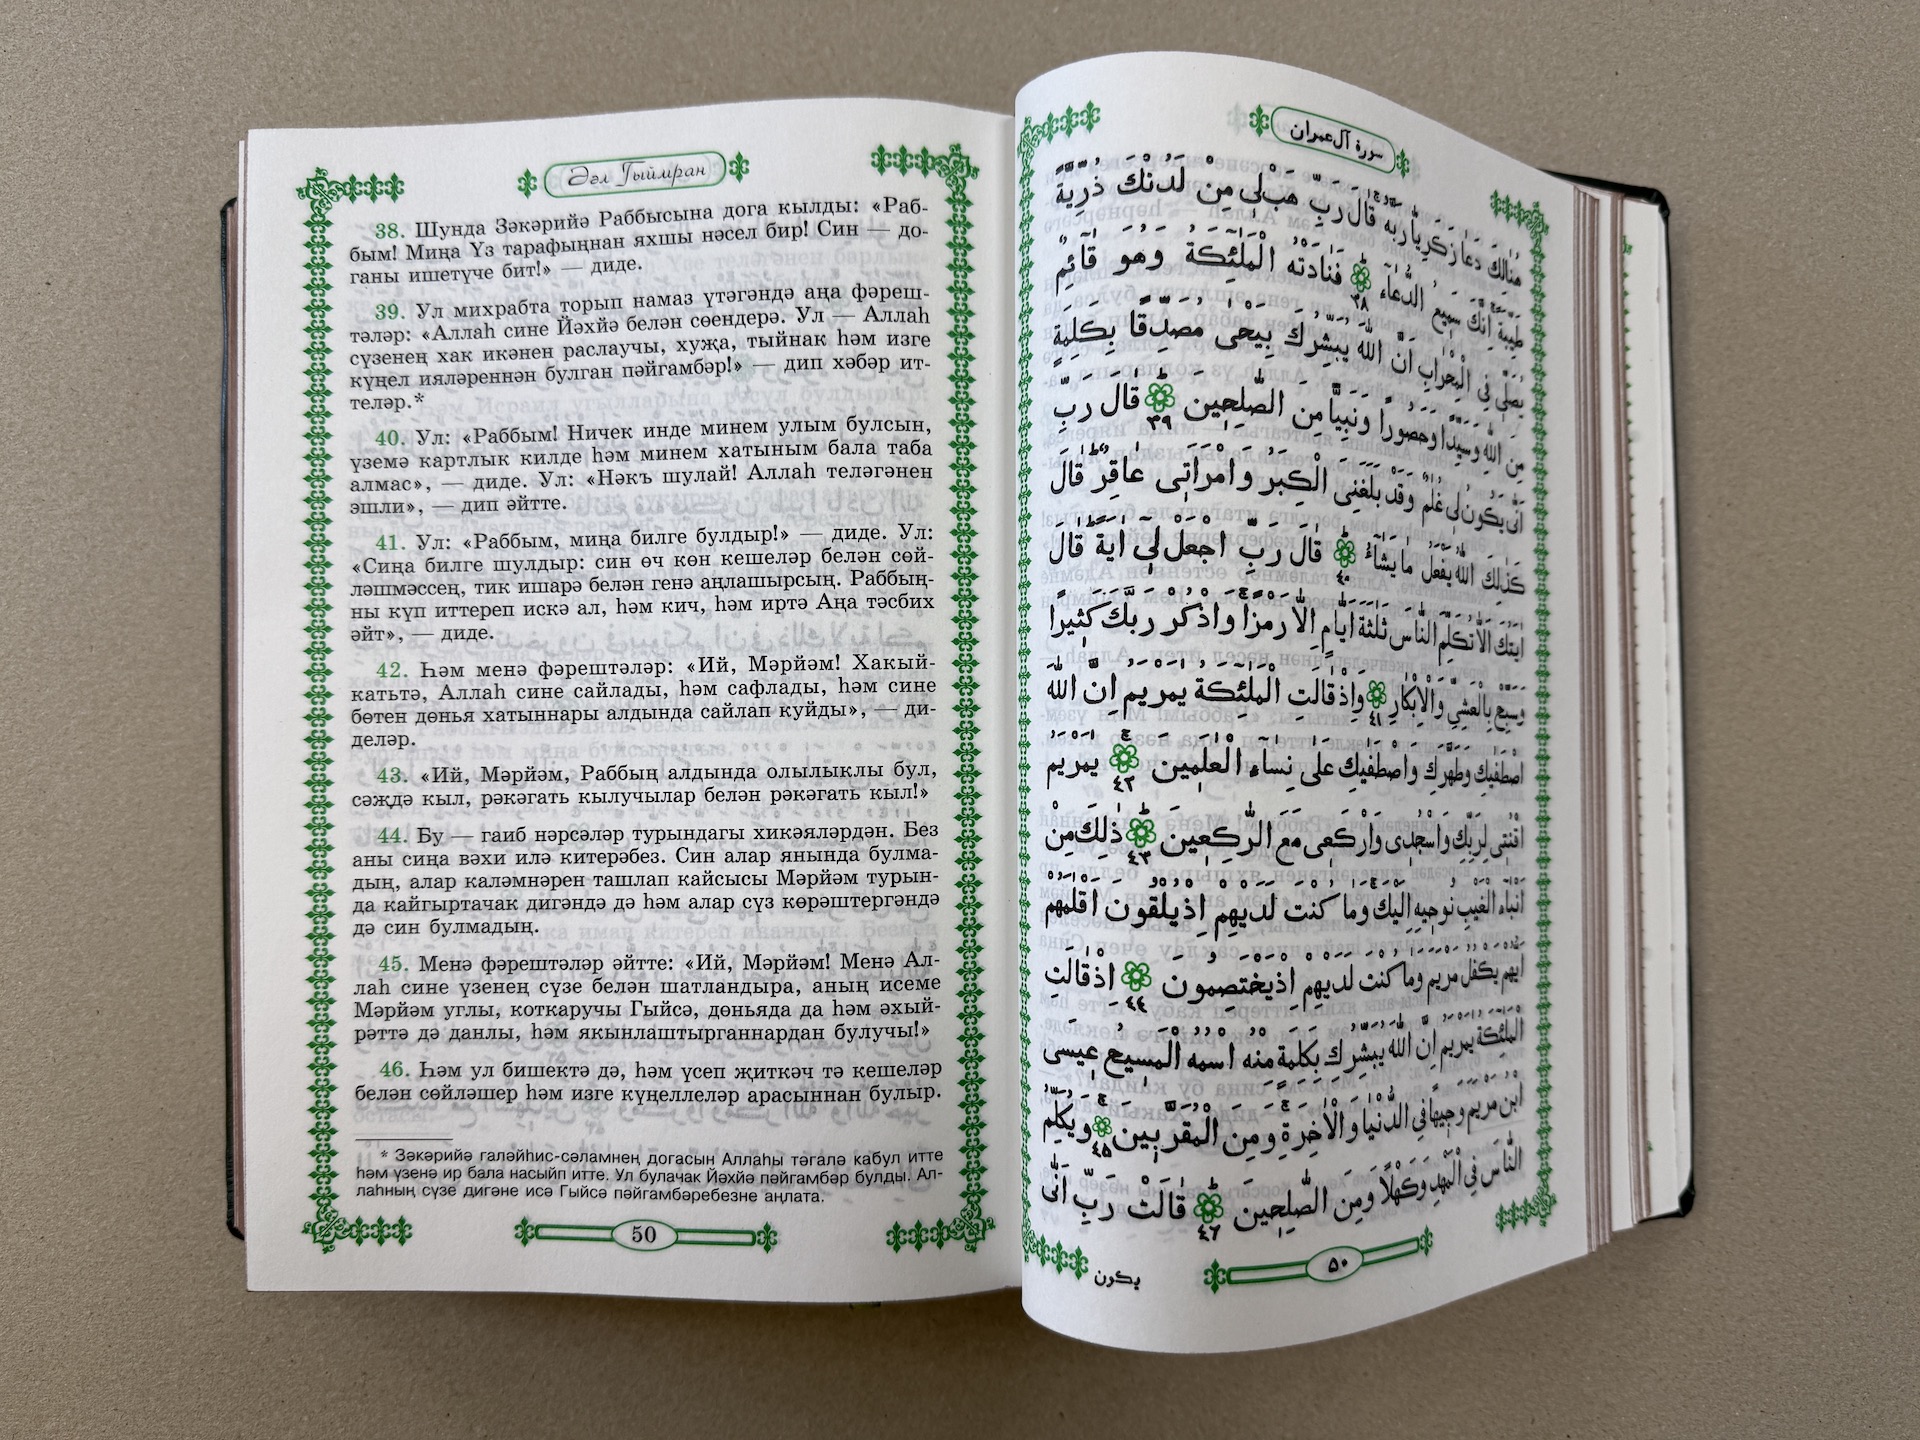 Әәл Гыймран
38. Шунда Зәкәрийә Раббысына дога кылды: «Раб-
бым! Миңа Үз тарафыңнан яхшы нәсел бир! Син — до-
ганы ишетүче бит!» — диде.
39. Ул михрабта торып намаз үтәгәндә аңа фәреш-
тәләр: «Аллаһ сине Йәхйә белән сөендерә. Ул — Аллаһ
сүзенең хак икәнен раслаучы, хуҗа, тыйнак һәм изге
күңел ияләреннән булган пәйгамбәр!» — дип хәбәр ит-
теләр.*
40. Ул: «Раббым! Ничек инде минем улым булсын,
үземә картлык килде һәм минем хатыным бала таба
алмас», — диде. Ул: «Нәкъ шулай! Аллаһ теләгәнен
эшли», — дип әйтте.
41. Ул: «Раббым, миңа билге булдыр!» — диде. Ул:
«Сиңа билге шулдыр: син өч көн кешеләр белән сөй-
ләшмәссең, тик ишарә белән генә аңлашырсың. Раббың-
ны күп иттереп искә ал, һәм кич, һәм иртә Аңа тәсбих
әйт», — диде.
42. Һәм менә фәрештәләр: «Ий, Мәрйәм! Хакый-
катьтә, Аллаһ сине сайлады, һәм сафлады, һәм сине
бөтен дөнья хатыннары алдында сайлап куйды», — ди-
деләр.
43. «Ий, Мәрйәм, Раббың алдында олылыклы бул,
сәҗдә кыл, рәкәгать кылучылар белән рәкәгать кыл!»
44. Бу — гаиб нәрсәләр турындагы хикәяләрдән. Без
аны сиңа вәхи илә китерәбез. Син алар янында булма-
дың, алар каләмнәрен ташлап кайсысы Мәрйәм турын-
да кайгыртачак дигәндә дә һәм алар сүз көрәштергәндә
дә син булмадың.
45. Менә фәрештәләр әйтте: «Ий, Мәрйәм! Менә Ал-
лаһ сине үзенең сүзе белән шатландыра, аның исеме
Мәрйәм углы, коткаручы Гыйсә, дөньяда да һәм әхый-
рәттә дә данлы, һәм якынлаштырганнардан булучы!»
46. Һәм ул бишектә дә, һәм үсеп җиткәч тә кешеләр
белән сөйләшер һәм изге күңеллеләр арасыннан булыр.
* Зәкәрийә галәйһис-сәламнең догасын Аллаһы тәгалә кабул итте
һәм үзенә ир бала насыйп итте. Ул булачак Йәхйә пәйгамбәр булды. Ал-
лаһның сүзе дигәне исә Гыйсә пәйгамбәребезне аңлата.
50
سورة آل عمران
هُنَالِكَ دَعَا زَكَرِيَّا رَبَّهُ قَالَ رَبِّ هَبْ لِي مِنْ لَدُنْكَ ذُرِّيَّةً
طَيِّبَةً اِنَّكَ سَمِيعُ الدُّعَاءِ ٣٨ فَنَادَتْهُ الْمَلٰئِكَةُ وَهُوَ قَائِمٌ
يُصَلِّي فِي الْمِحْرَابِ اَنَّ اللّٰهَ يُبَشِّرُكَ بِيَحْيٰى مُصَدِّقًا بِكَلِمَةٍ
مِنَ اللّٰهِ وَسَيِّدًا وَحَصُورًا وَنَبِيًّا مِنَ الصّٰلِحِينَ ٣٩ قَالَ رَبِّ
اَنّٰى يَكُونُ لِي غُلٰمٌ وَقَدْ بَلَغَنِيَ الْكِبَرُ وَامْرَاَتِي عَاقِرٌ قَالَ
كَذٰلِكَ اللّٰهُ يَفْعَلُ مَا يَشَاءُ ٤٠ قَالَ رَبِّ اجْعَلْ لِي اٰيَةً قَالَ
اٰيَتُكَ اَلَّا تُكَلِّمَ النَّاسَ ثَلٰثَةَ اَيَّامٍ اِلَّا رَمْزًا وَاذْكُرْ رَبَّكَ كَثِيرًا
وَسَبِّحْ بِالْعَشِيِّ وَالْاِبْكَارِ ٤١ وَاِذْ قَالَتِ الْمَلٰئِكَةُ يٰمَرْيَمُ اِنَّ اللّٰهَ
اصْطَفٰيكِ وَطَهَّرَكِ وَاصْطَفٰيكِ عَلٰى نِسَاءِ الْعٰلَمِينَ ٤٢ يٰمَرْيَمُ
اقْنُتِي لِرَبِّكِ وَاسْجُدِي وَارْكَعِي مَعَ الرّٰكِعِينَ ٤٣ ذٰلِكَ مِنْ
اَنْبَاءِ الْغَيْبِ نُوحِيهِ اِلَيْكَ وَمَا كُنْتَ لَدَيْهِمْ اِذْ يُلْقُونَ اَقْلٰمَهُمْ
اَيُّهُمْ يَكْفُلُ مَرْيَمَ وَمَا كُنْتَ لَدَيْهِمْ اِذْ يَخْتَصِمُونَ ٤٤ اِذْ قَالَتِ
الْمَلٰئِكَةُ يٰمَرْيَمُ اِنَّ اللّٰهَ يُبَشِّرُكِ بِكَلِمَةٍ مِنْهُ اسْمُهُ الْمَسِيحُ عِيسَى
ابْنُ مَرْيَمَ وَجِيهًا فِي الدُّنْيَا وَالْاٰخِرَةِ وَمِنَ الْمُقَرَّبِينَ ٤٥ وَيُكَلِّمُ
النَّاسَ فِي الْمَهْدِ وَكَهْلًا وَمِنَ الصّٰلِحِينَ ٤٦ قَالَتْ رَبِّ اَنّٰى
يكون
٥٠